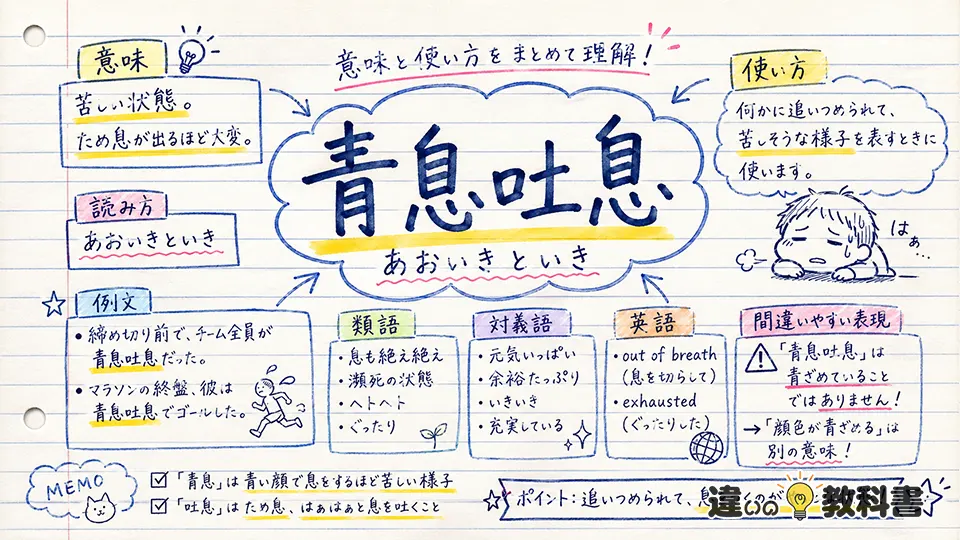 意味と使い方をまとめて理解！
青息吐息
あおいきといき
意味
苦しい状態。
ため息が出るほど大変。
読み方
あおいきといき
使い方
何かに追いつめられて、
苦しそうな様子を表すときに
使います。
はぁ…
例文
・締め切り前で、チーム全員が
青息吐息だった。
・マラソンの終盤、彼は
青息吐息でゴールした。
類語
・息も絶え絶え
・瀕死の状態
・ヘトヘト
・ぐったり
対義語
・元気いっぱい
・余裕たっぷり
・いきいき
・充実している
英語
・out of breath
（息を切らして）
・exhausted
（ぐったりした）
間違いやすい表現
「青息吐息」は
青ざめていること
ではありません！
→「顔色が青ざめる」は
別の意味！
MEMO
☑「青息」は青い顔で息をするほど苦しい様子
☑「吐息」はため息、はぁはぁと息を吐くこと
ポイント：追いつめられて、息
違いの教科書